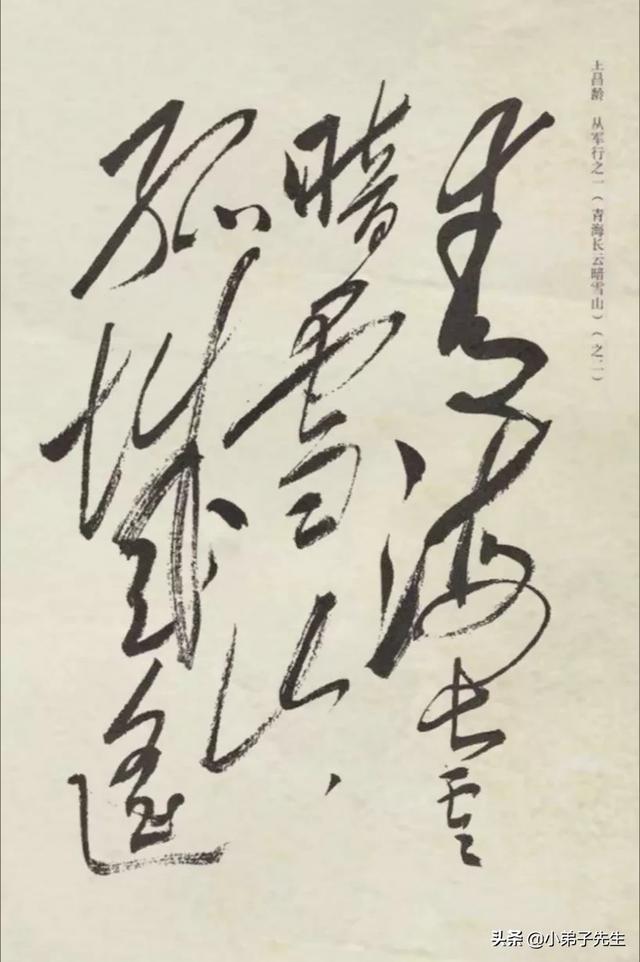 王昌龄 从军行之一（青海长云暗雪山）（之二）
青海长云
暗雪山，
孤城遥
头条 @小弟子先生